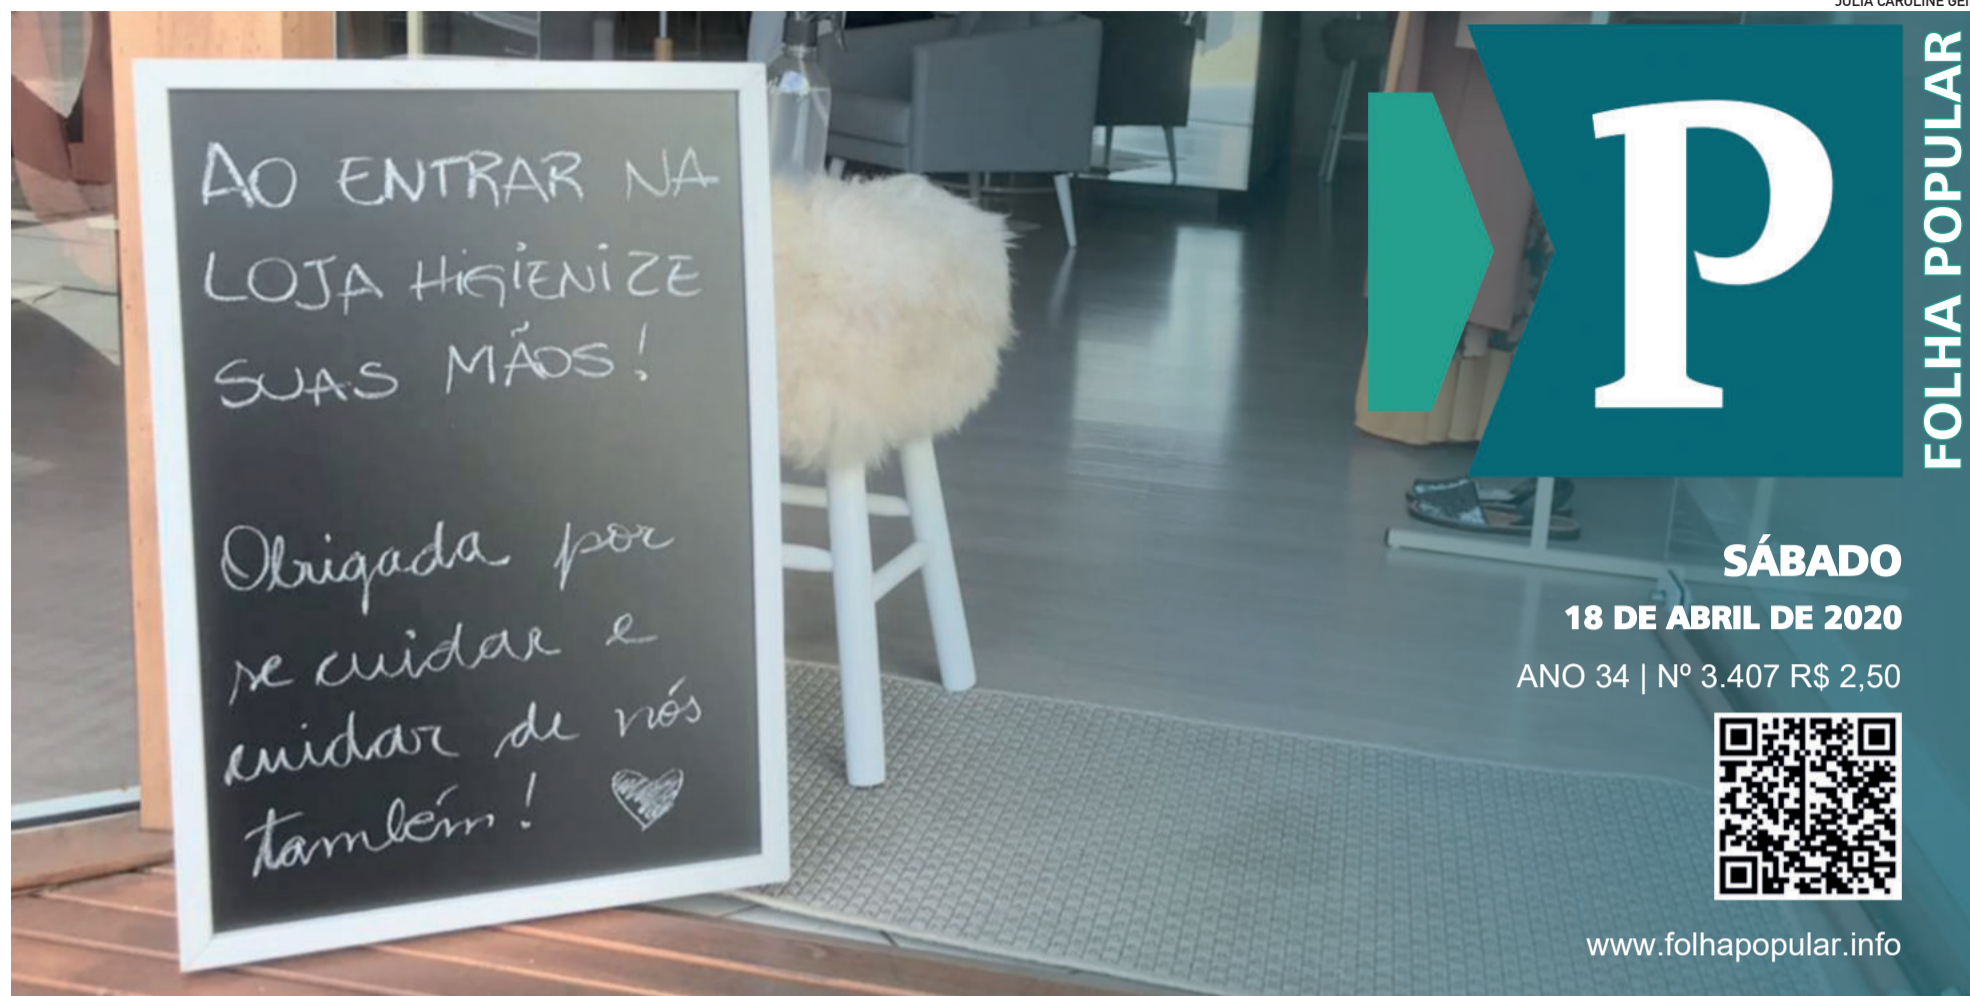 JÚLIA CAROLINE GEI
AO ENTRAR NA
LOJA HIGIENIZE
SUAS MÃOS!
Obrigada por
se cuidar e
cuidar de nós
também!
P
FOLHA POPULAR
SÁBADO
18 DE ABRIL DE 2020
ANO 34 | Nº 3.407 R$ 2,50
www.folhapopular.info